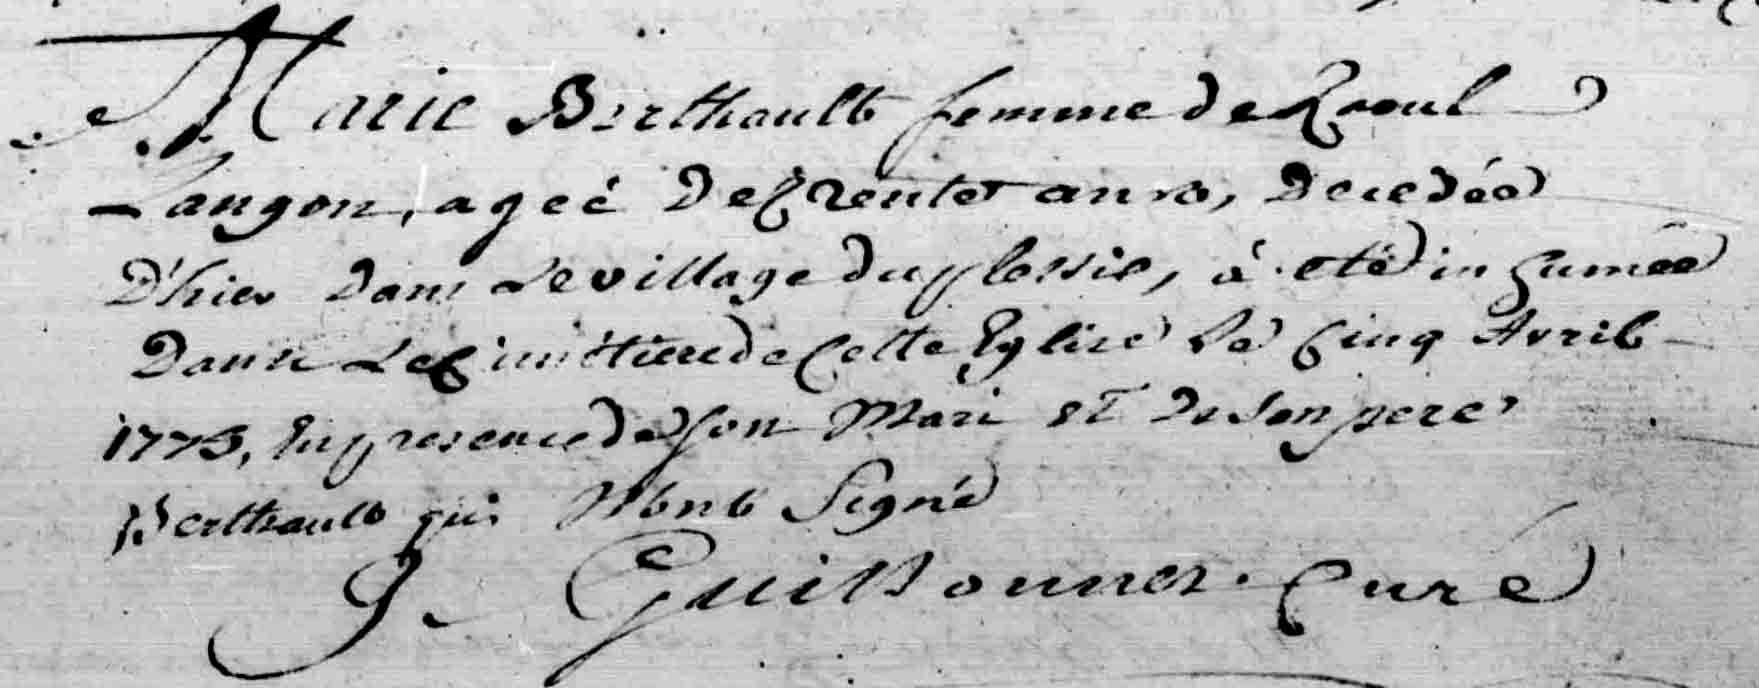 Marie Berthault femme de Raoul
Langon, ageé de trente ans, decedée
D'hier dans le village du plessis, à eté inhumée
Dans le Cimétiere de Cette Eglise le Cinq Avril
1773, En presence de son Mari et de son pere
Berthault qui N'ont Signé
J Guillonnet. Curé